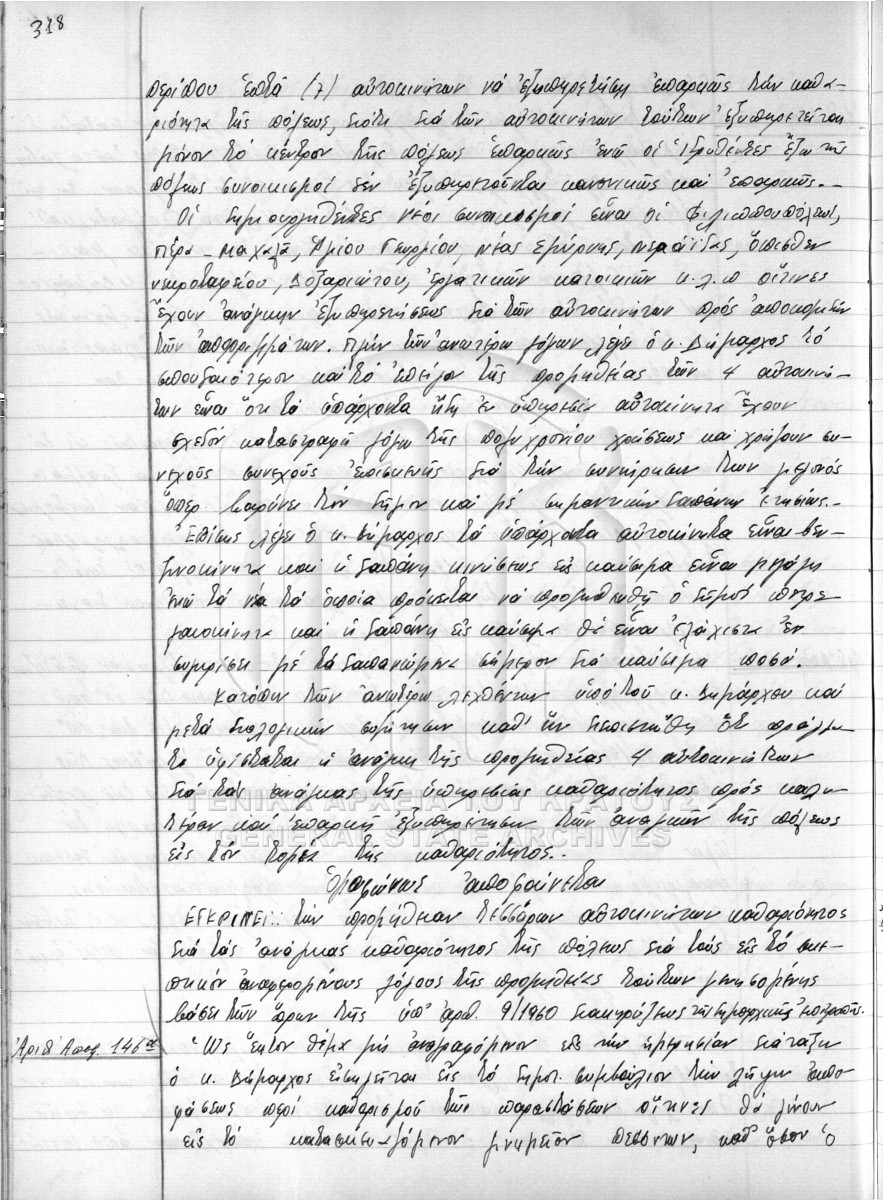 318
περίπου ἑπτά (7) αὐτοκινήτων νά ἐξυπηρετήσῃ ἐπαρκῶς τήν καθα-
ριότητα τῆς πόλεως, διότι διά τῶν αὐτοκινήτων τούτων ἐξυπηρετεῖται
μόνον τό κέντρον τῆς πόλεως ἐπαρκῶς ἐνῶ οἱ ἱδρυθέντες ἔξω τῆς
πόλεως συνοικισμοί δέν ἐξυπηρετοῦνται κανονικῶς καί ἐπαρκῶς.-
Οἱ δημιουργηθέντες νέοι συνοικισμοί εἶναι οἱ Φιλιππουπόλεως,
Πέρα - μαχαλᾶ, Ἁγίου Γεωργίου, Νέας Σμύρνης, Νεράιδας, ὄπισθεν
νεκροταφείου, Δοξαριώτου, ἐργατικῶν κατοικιῶν κ.λ.π οἵτινες
ἔχουν ἀνάγκην ἐξυπηρετήσεως διά τῶν αὐτοκινήτων πρός ἀποκομιδήν
τῶν ἀπορριμμάτων. Πλήν τῶν ἀνωτέρω λόγων λέγει ὁ κ. Δήμαρχος τό
σπουδαιότερον καί τό ἐπεῖγον τῆς προμηθείας τῶν 4 αὐτοκινή-
των εἶναι ὅτι τά ὑπάρχοντα ἤδη ἐν ὑπηρεσίᾳ αὐτοκίνητα ἔχουν
σχεδόν καταστραφῆ λόγω τῆς πολυχρονίου χρήσεως καί χρήζουν συ-
νεχοῦς συνεχοῦς ἐπισκευῆς διά τήν συντήρησιν των γεγονός
ὅπερ βαρύνει τόν δῆμον καί μέ σημαντικήν δαπάνην ἐτησίως.-
Ἐπίσης λέγει ὁ κ. Δήμαρχος τά ὑπάρχοντα αὐτοκίνητα εἶναι βεν-
ζινοκίνητα καί ἡ δαπάνη κινήσεως εἰς καύσιμα εἶναι μεγάλη
ἐνῶ τά νέα τά ὁποῖα πρόκειται νά προμηθευθῇ ὁ δῆμος πετρε-
λαιοκίνητα καί ἡ δαπάνη εἰς καύσιμα θά εἶναι ἐλάχιστα ἐν
συγκρίσει μέ τά δαπανώμενα σήμερον διά καύσιμα ποσά.
Κατόπιν τῶν ἀνωτέρω λεχθέντων ὑπό τοῦ κ. Δημάρχου καί
μετά διαλογικήν συζήτησιν καθ' ἥν διεπιστώθη ὅτι πράγμα-
τι ὑφίσταται ἡ ἀνάγκη τῆς προμηθείας 4 αὐτοκινήτων
διά τάς ἀνάγκας τῆς ὑπηρεσίας καθαριότητος πρός καλυ-
τέραν καί ἐπαρκῆ ἐξυπηρέτησιν τῶν ἀναγκῶν τῆς πόλεως
εἰς τόν τομέα τῆς καθαριότητος.-
Ὁμοφώνως ἀποφαίνεται
ΕΓΚΡΙΝΕΙ: τήν προμήθειαν τεσσάρων αὐτοκινήτων καθαριότητος
διά τάς ἀνάγκας καθαριότητος τῆς πόλεως διά τούς εἰς τό σκε-
πτικόν ἀναφερομένους λόγους τῆς προμηθείας τούτων γενησομένης
βάσει τῶν ὅρων τῆς ὑπ' ἀριθ. 9/1960 διακηρύξεως τῆς Δημαρχιακῆς Ἐπιτροπῆς.
Ἀριθ Αποφ. 146η
Ὡς ἕκτον θέμα μή ἀναγραφόμενον εἰς τήν ἡμερησίαν διάταξιν
ὁ κ. Δήμαρχος εἰσηγεῖται εἰς τό δημοτ. συμβούλιον τήν λῆψιν ἀπο
φάσεως περί καθορισμοῦ τῶν παραστάσεων αἵτινες θά γίνουν
εἰς τό κατασκευαζόμενον μνημεῖον πεσόντων, καθ' ὅσον ὁ
ΓΕΝΙΚΑ ΑΡΧΕΙΑ ΤΟΥ ΚΡΑΤΟΥΣ
GENERAL STATE ARCHIVES